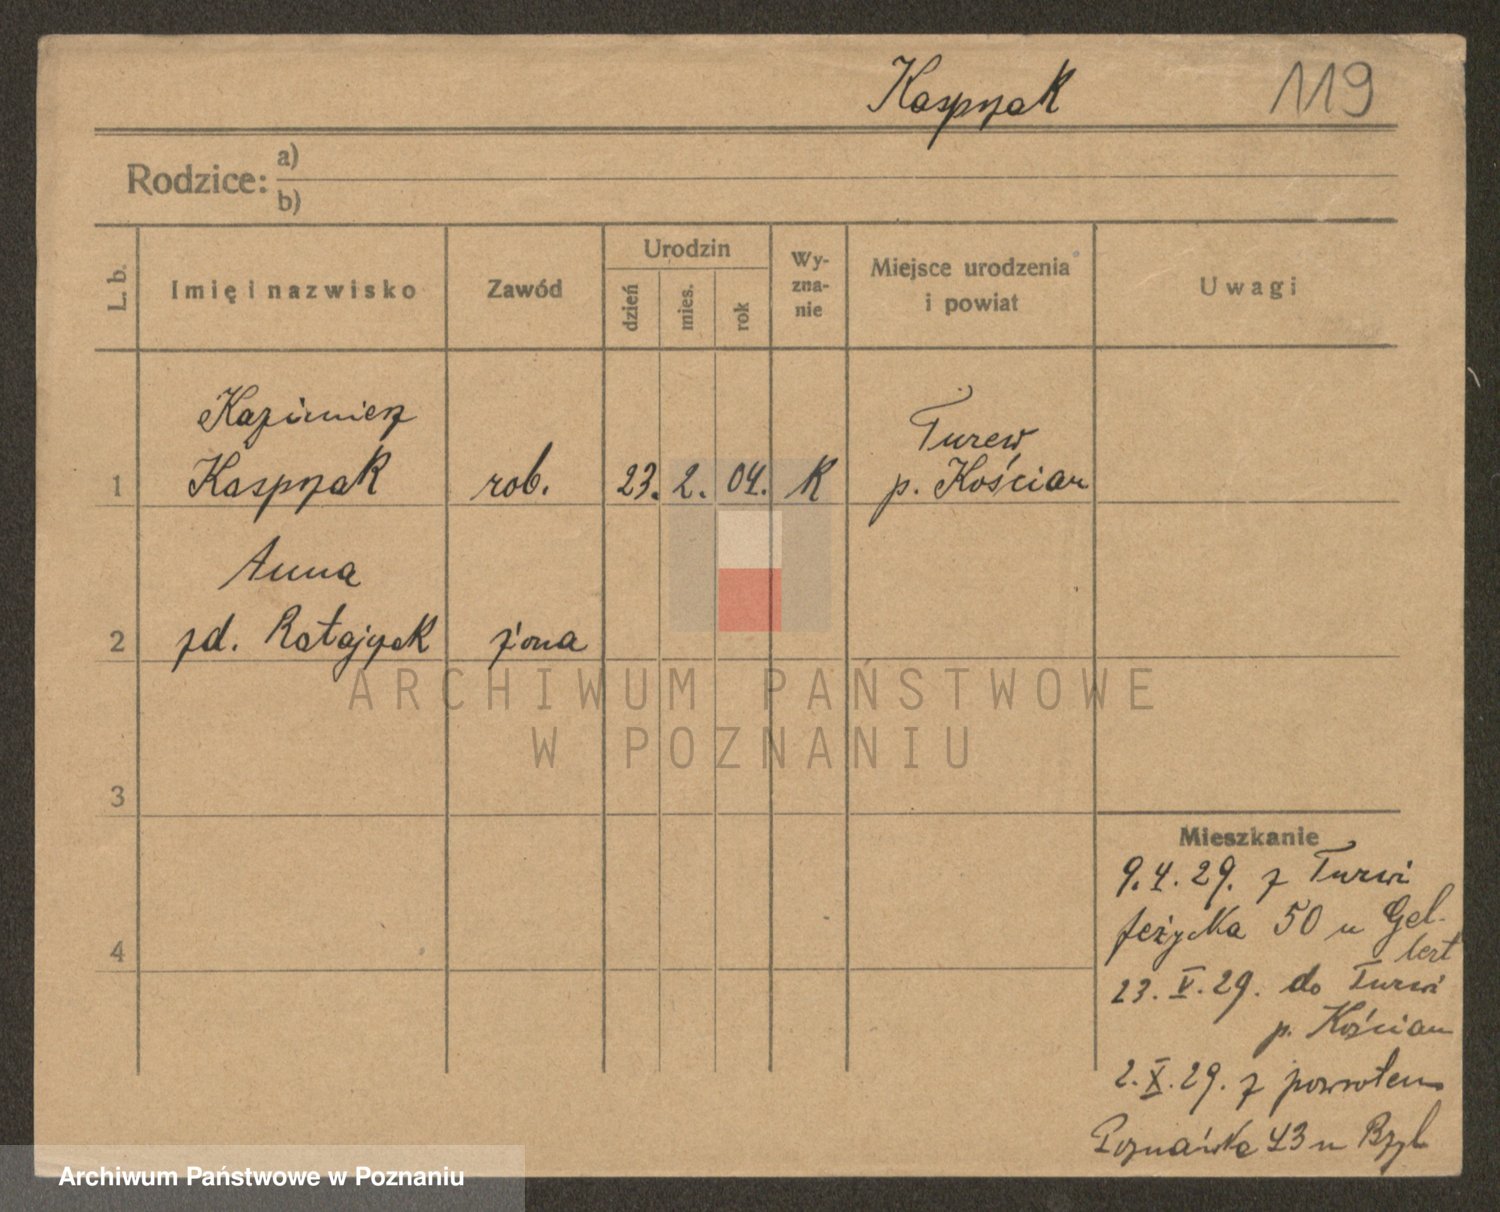 Kasprzak 119
Rodzice: a)
b)
L. b. Imię i nazwisko Zawód Urodzin dzień mies. rok Wy-zna-nie Miejsce urodzenia i powiat Uwagi
Kazimierz
1 Kasprzak rob. 23. 2. 04. K Turew
p. Kościan
Anna
2 zd. Ratajczak żona
ARCHIWUM PAŃSTWOWE
W POZNANIU
3
Mieszkanie
9.4.29. z Turwi
Jeżycka 50 u Gel-
bert
4
23.V.29. do Turwi
p. Kościan
2.X.29. z powrotem
Poznańska 43 u
Archiwum Państwowe w Poznaniu